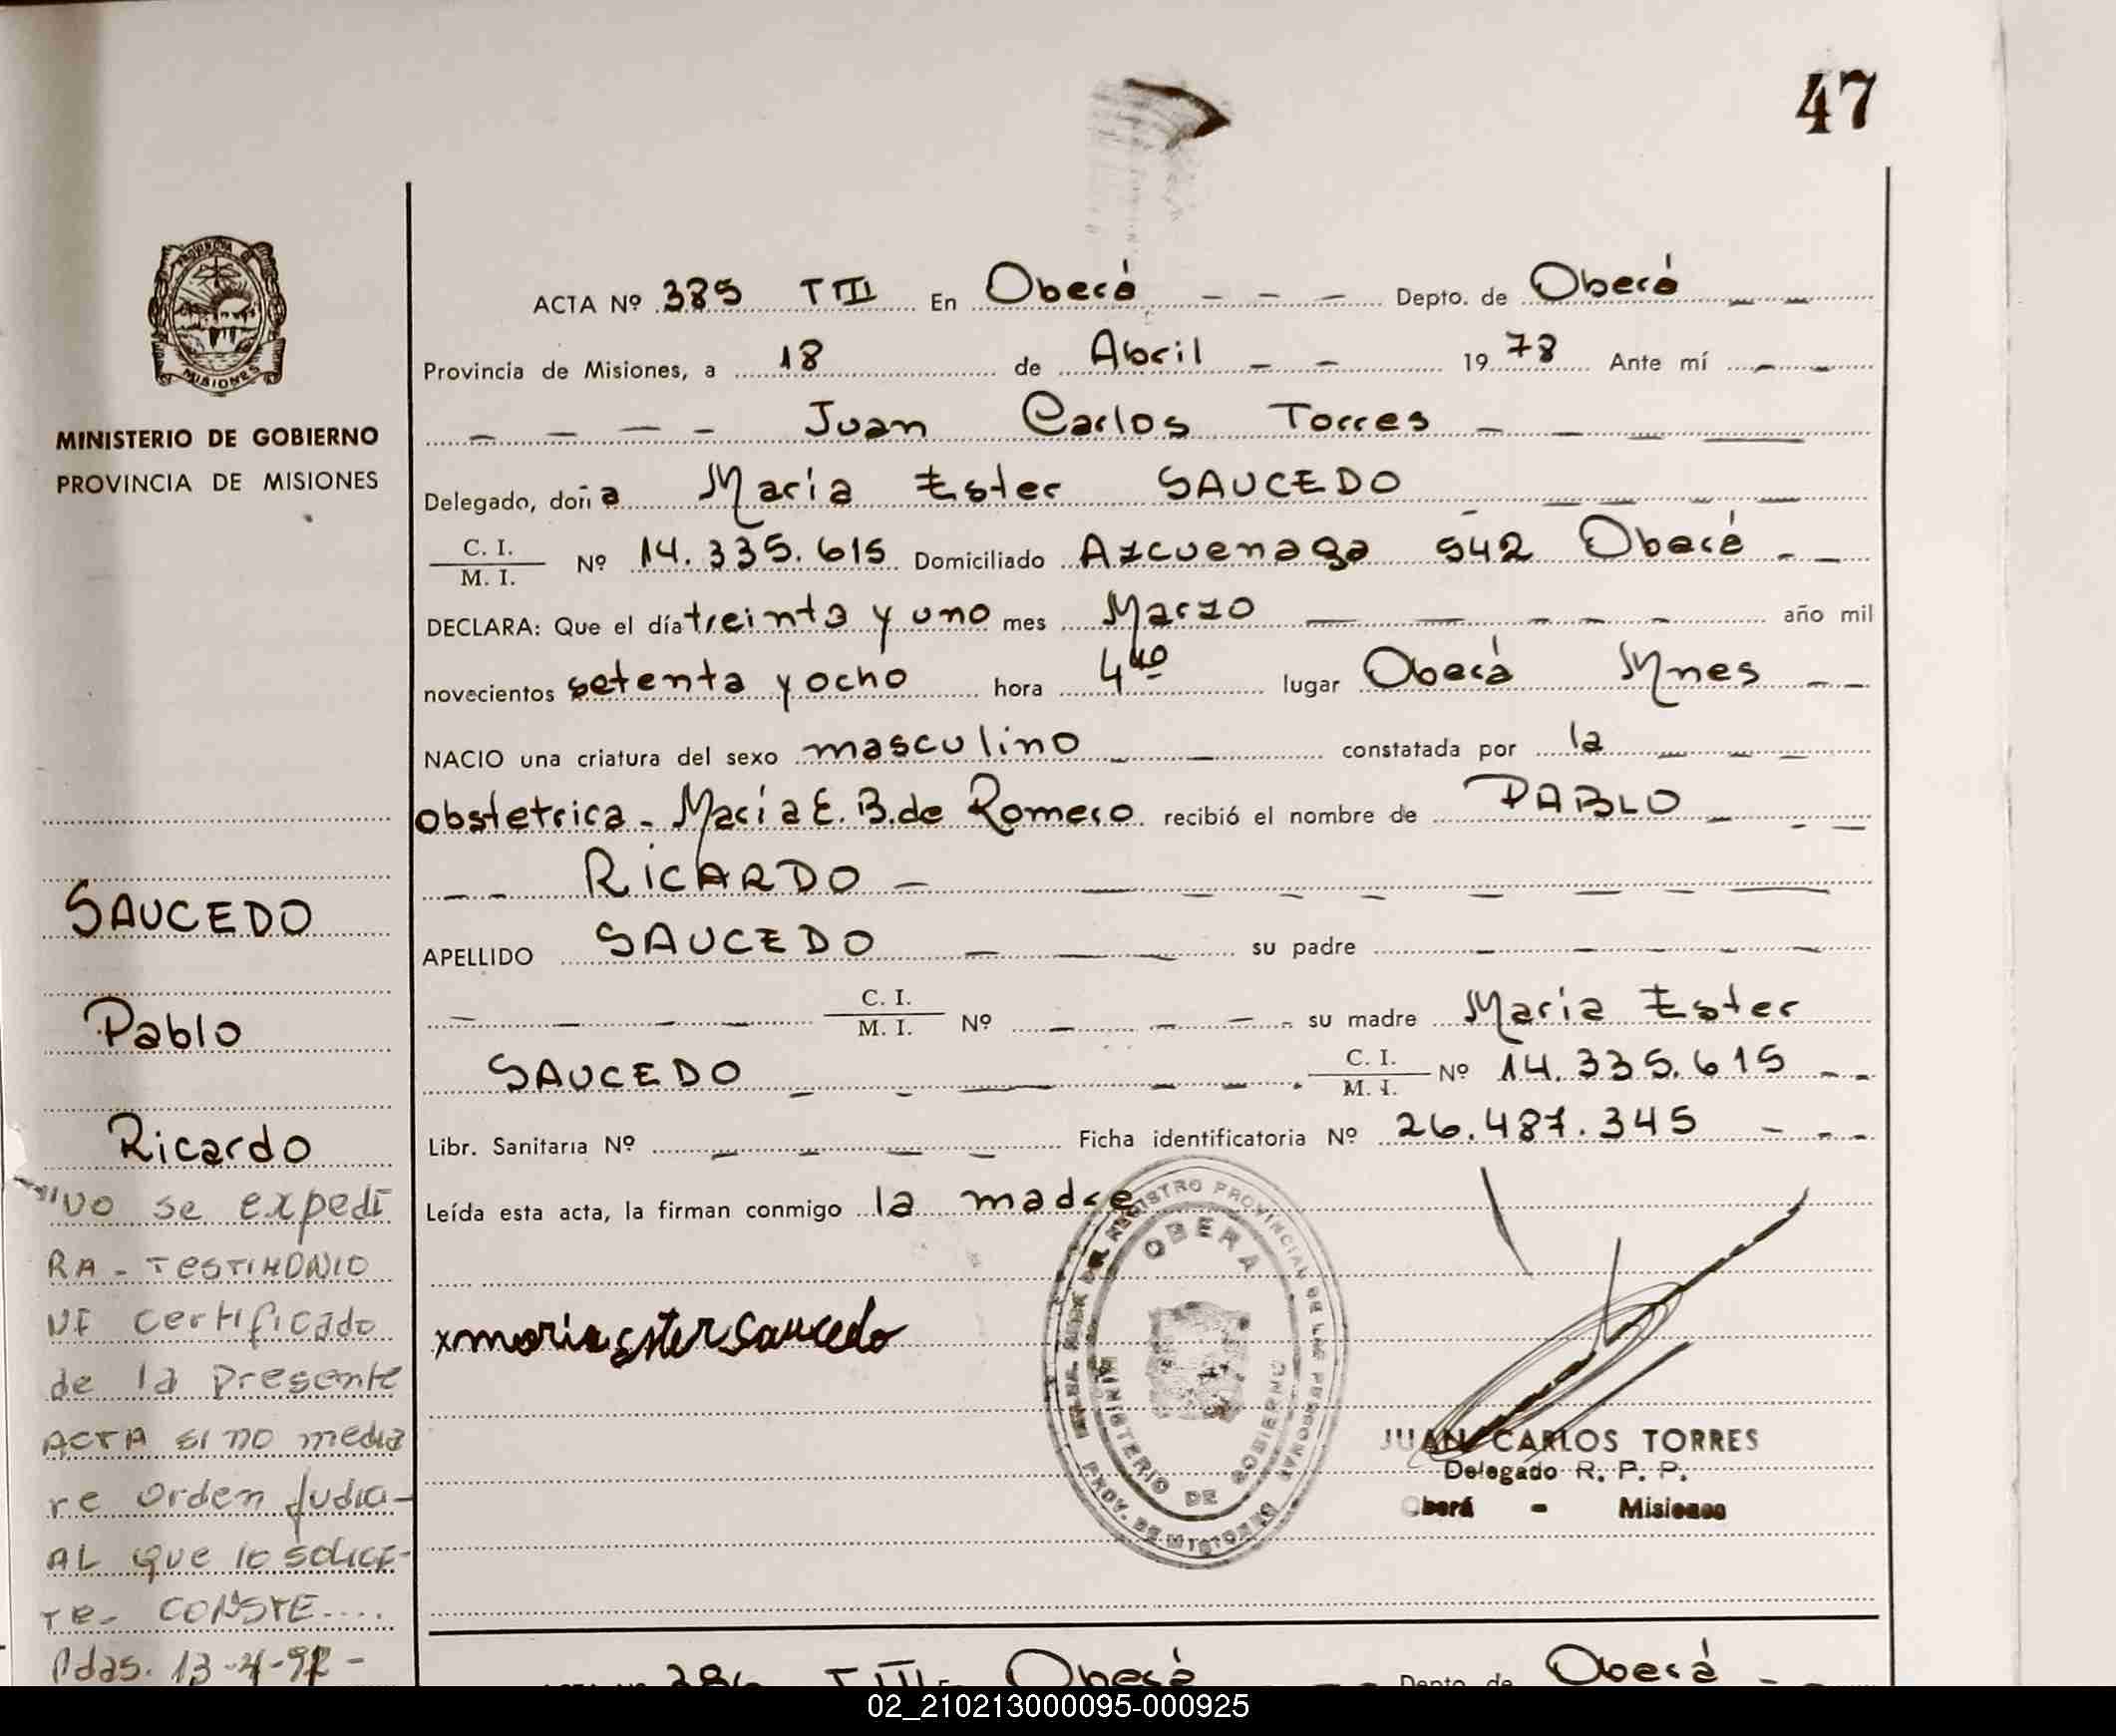 47
ACTA Nº 385 T III En Oberá Depto. de Oberá
Provincia de Misiones, a 18 de Abril 19 78 Ante mí
Juan Carlos Torres
MINISTERIO DE GOBIERNO
PROVINCIA DE MISIONES
Delegado, doña María Ester SAUCEDO
C. I.
M. I. Nº 14.335.615 Domiciliado Azcuenaga 542 Oberá
DECLARA: Que el día treinta y uno mes Marzo año mil
novecientos setenta y ocho hora 4 40 lugar Oberá Mnes
NACIO una criatura del sexo masculino constatada por la
obstetrica - María E. B. de Romero recibió el nombre de PABLO
RICARDO
APELLIDO SAUCEDO su padre
C. I.
M. I. Nº su madre María Ester
SAUCEDO C. I.
M. I. Nº 14.335.615
Libr. Sanitaria Nº Ficha identificatoria Nº 26.487.345
Leída esta acta, la firman conmigo la madre
x maria Ester Saucedo
OBERA
MINISTERIO DE GOBIERNO
PROV. DE MISIONES
JUAN CARLOS TORRES
Delegado R. P. P.
Oberá - Misiones
SAUCEDO
Pablo
Ricardo
No se expedi
RA - TESTIMONIO
NI certificado
de la presente
ACTA si no media
re Orden Judici-
AL que lo solici-
te- CONSTE....
Pdas. 13-4-92-
386 T III Oberá Depto. de Oberá
02_210213000095-000925